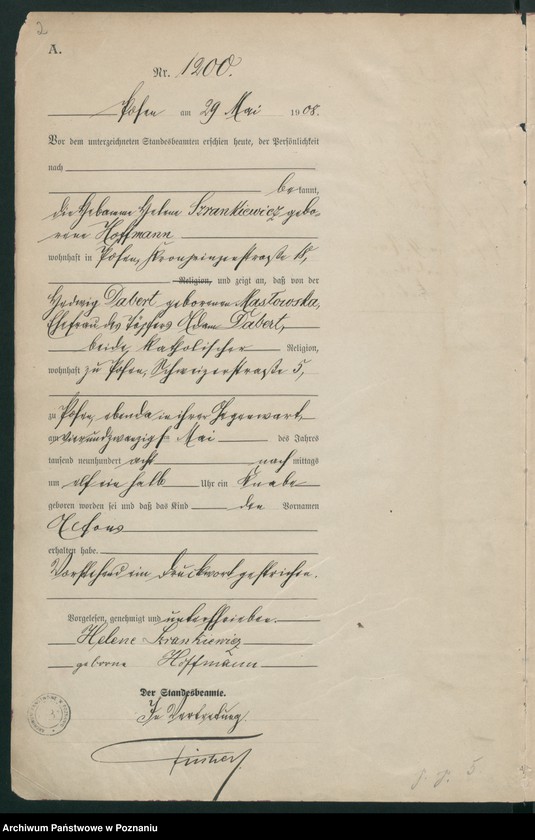 2
A.
Nr. 1200.
Posen am 29 Mai 1908.
Vor dem unterzeichneten Standesbeamten erschien heute, der Persönlichkeit
nach
bekannt,
die Hebamme Helene Szrankiewicz gebo-
rene Hoffmann
wohnhaft in Posen, Kronprinzenstraße 18,
Religion, und zeigt an, daß von der
Hedwig Dabert geborenen Masłowska,
Ehefrau des Adam Dabert,
beide katholischer Religion,
wohnhaft zu Posen, Schweizerstraße 5,
zu Posen, ebenda in ihrer Gegenwart
am vierundzwanzigsten Mai des Jahres
tausend neunhundert acht nach mittags
um elf ein halb Uhr ein Knabe
geboren worden sei und daß das Kind den Vornamen
erhalten habe.
Vorstehend ein Druckwort gestrichen.
Vorgelesen, genehmigt und unterschrieben.
Helene Szrankiewicz
geborne Hoffmann
Der Standesbeamte.
In Vertretung
Archiwum Państwowe w Poznaniu